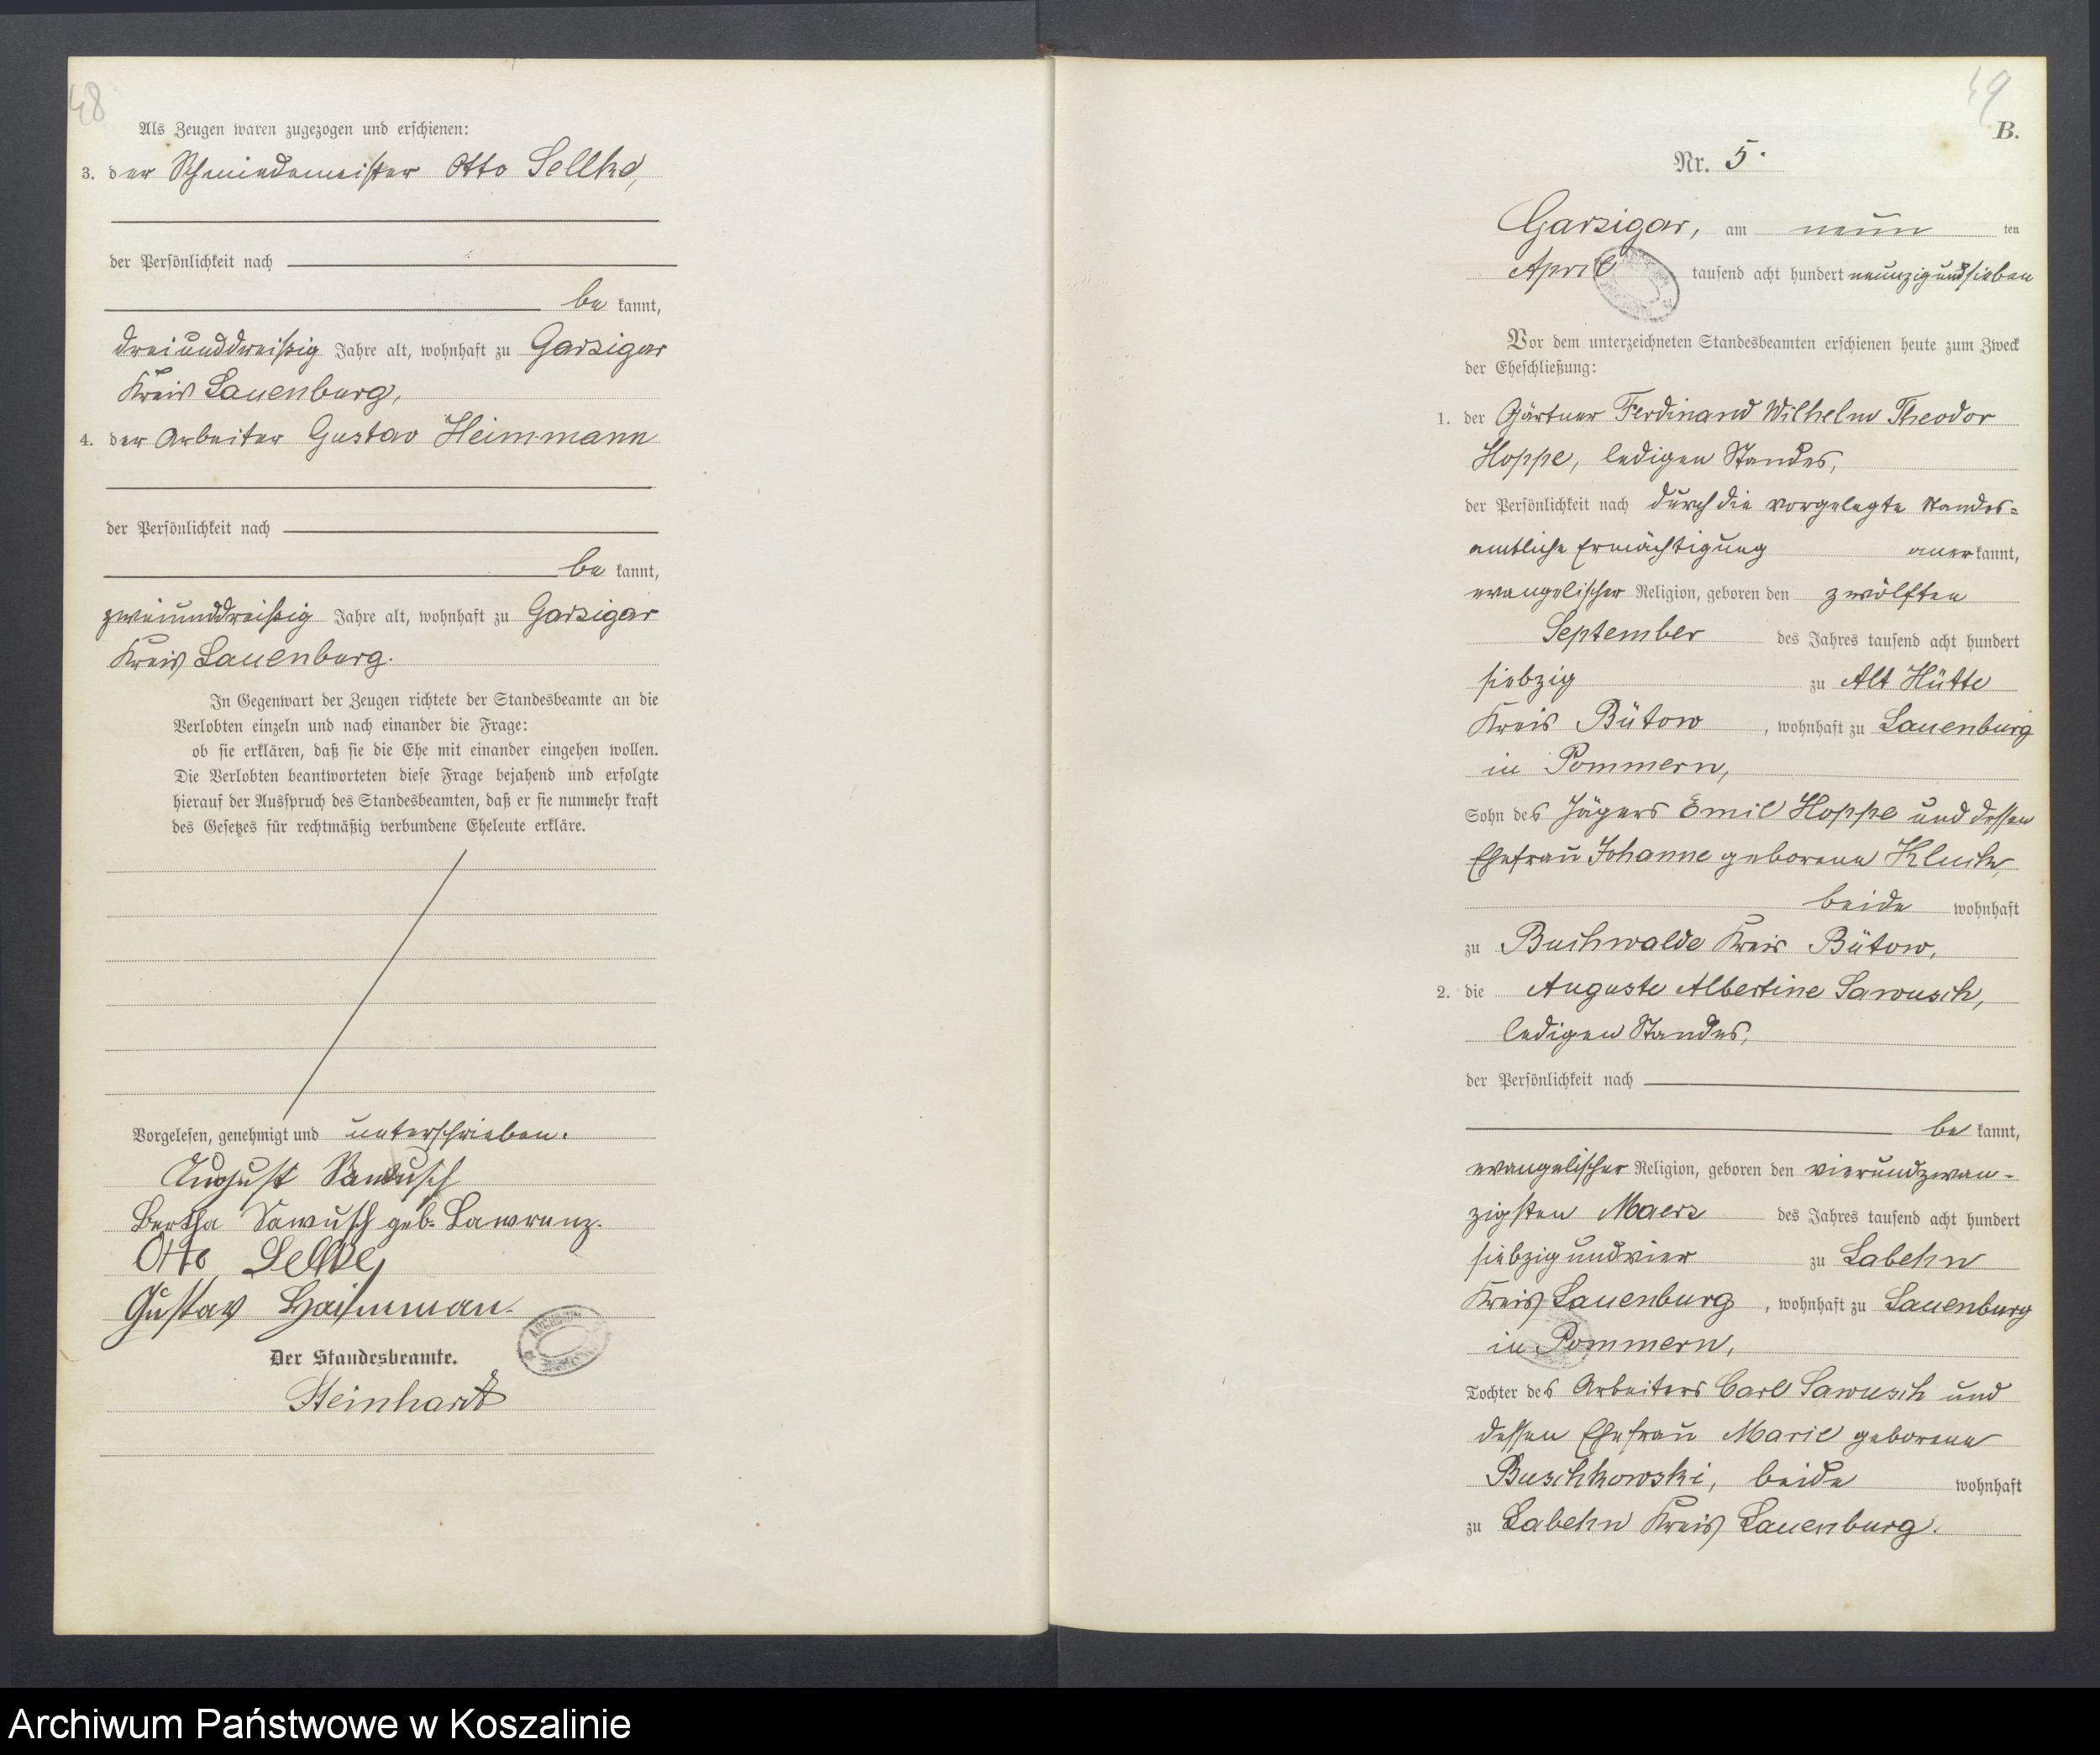 48
Als Zeugen waren zugezogen und erschienen:
3. der Schmiedemeister Otto Sellke,
der Persönlichkeit nach
be kannt,
dreiunddreißig Jahre alt, wohnhaft zu Garzigar
Kreis Lauenburg,
4. der Arbeiter Gustav Heimmann
der Persönlichkeit nach
be kannt,
zweiunddreißig Jahre alt, wohnhaft zu Garzigar
Kreis Lauenburg.
In Gegenwart der Zeugen richtete der Standesbeamte an die
Verlobten einzeln und nach einander die Frage:
ob sie erklären, daß sie die Ehe mit einander eingehen wollen.
Die Verlobten beantworteten diese Frage bejahend und erfolgte
hierauf der Ausspruch des Standesbeamten, daß er sie nunmehr kraft
des Gesetzes für rechtmäßig verbundene Eheleute erkläre.
Vorgelesen, genehmigt und unterschrieben.
August Sawusch
Bertha Sawusch geb. Lawrenz.
Otto Sellke
Gustav Heimman.
Der Standesbeamte.
Steinhardt
49
B.
Nr. 5.
Garzigar, am neun ten
April tausend acht hundert neunzigundsieben
Vor dem unterzeichneten Standesbeamten erschienen heute zum Zweck
der Eheschließung:
1. der Gärtner Ferdinand Wilhelm Theodor
Hoppe, ledigen Standes,
der Persönlichkeit nach durch die vorgelegte standes=
amtliche Ermächtigung aner kannt,
evangelischer Religion, geboren den zwölften
September des Jahres tausend acht hundert
siebzig zu Alt Hütte
Kreis Bütow, wohnhaft zu Lauenburg
in Pommern,
Sohn des Jägers Emil Hoppe und dessen
Ehefrau Johanne geborene
beide wohnhaft
zu Buchwalde Kreis Bütow,
2. die Auguste Albertine Sawusch,
ledigen Standes,
der Persönlichkeit nach
be kannt,
evangelischer Religion, geboren den vierundzwan=
zigsten Maerz des Jahres tausend acht hundert
siebzigundvier zu Labehn
Kreis Lauenburg, wohnhaft zu Lauenburg
in Pommern,
Tochter des Arbeiters Carl Sawusch und
dessen Ehefrau Marie geborene
Buschkowski, beide wohnhaft
zu Labehn Kreis Lauenburg.
Archiwum Państwowe w Koszalinie